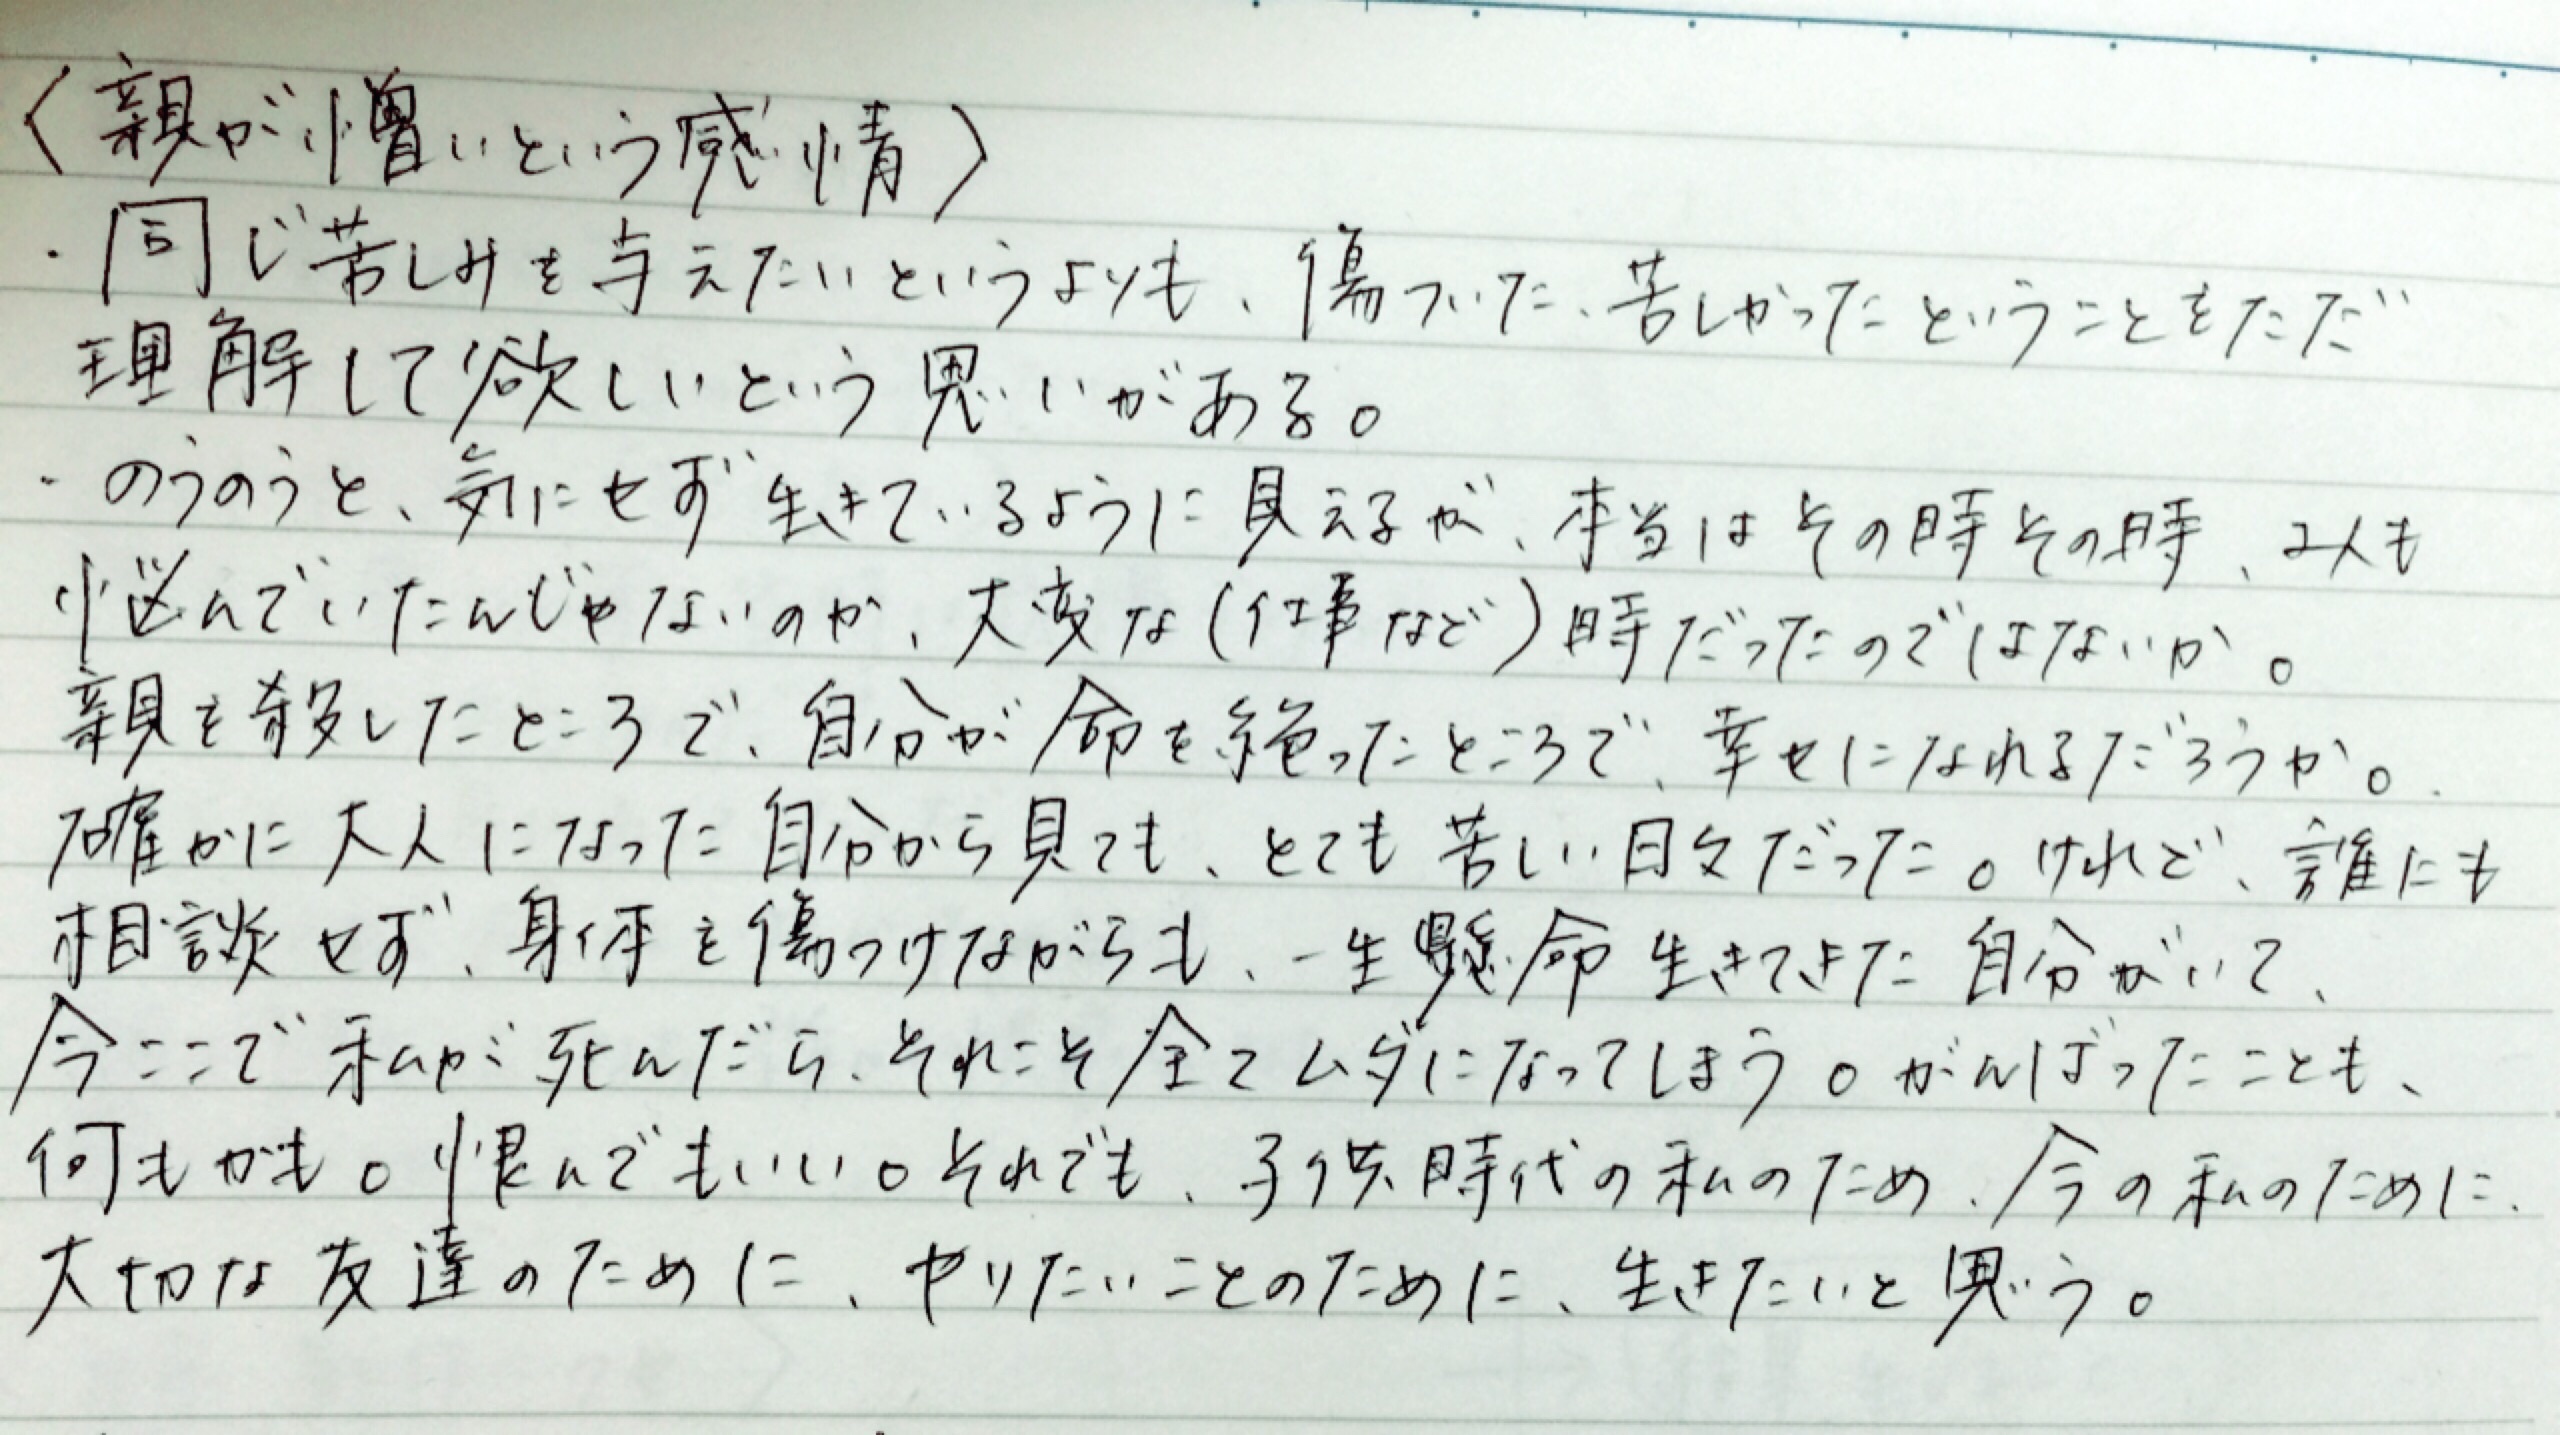 〈親が憎いという感情〉
・同じ苦しみを与えたいというよりも、傷ついた、苦しかったということをただ
理解して欲しいという思いがある。
・のうのうと、気にせず生きているように見えるが、本当はその時その時、2人も
悩んでいたんじゃないのか、大変な(仕事など)時だったのではないか。
親を殺したところで、自分が命を絶ったところで、幸せになれるだろうか。
確かに大人になった自分から見ても、とても苦しい日々だった。けれど、誰にも
相談せず、身体を傷つけながらも、一生懸命生きてきた自分がいて、
今ここで私が死んだら、それこそ全てムダになってしまう。がんばったことも、
何もかも。恨んでもいい。それでも、子供時代の私のため、今の私のために、
大切な友達のために、やりたいことのために、生きたいと思う。